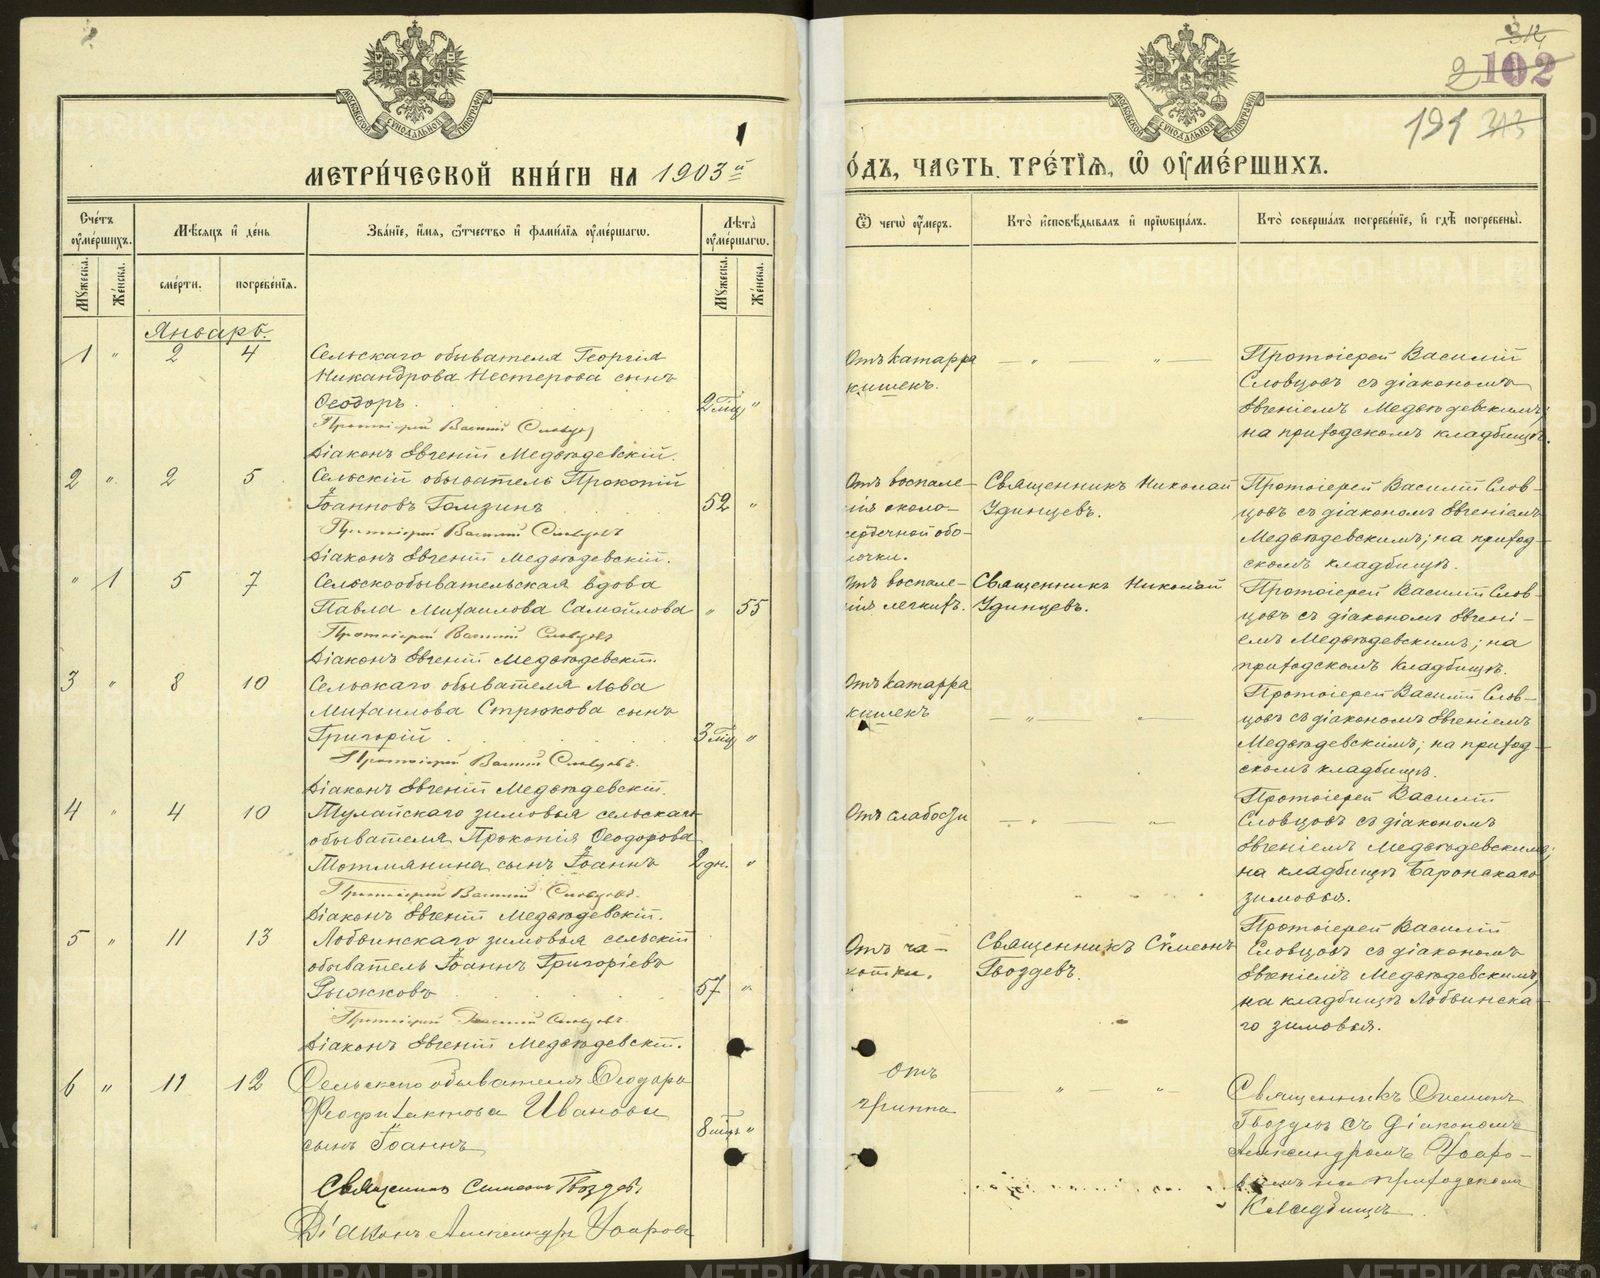 314
2 102
191 313
1
МЕТРИ́ЧЕСКОЙ КНИ́ГИ НА 1903й
ГО́ДЪ, ЧАСТЬ ТРЕ́ТІѦ, Ѡ҆ ОУ҆МЕ́РШИХЪ.
Сче́тъ оу҆ме́ршихъ.
Мѣ́сяцъ и҆ де́нь
Зва́ніе, и҆́мя, ѻ҆́тчество и҆ фами́лія оу҆ме́ршагѡ.
Лѣ́та оу҆ме́ршагѡ.
Ѿ чегѡ̀ оу҆́меръ.
Кто̀ и҆сповѣ́дывалъ и҆ прїѡбща́лъ.
Кто̀ соверша́лъ погребе́ніе, и҆ гдѣ̀ погребены̀.
Му́жеска.
Же́нска.
сме́рти.
погребе́нія.
Му́жеска.
Же́нска.
Январь.
1 " 2 4
Сельскаго обывателя Георгія
Никандрова Нестерова сынъ
Ѳеодоръ 2 мц "
Протоіерей Василій Словцовъ
Діаконъ Евгеній Медвѣдевскій.
Отъ катарра
кишекъ.
— " — " —
Протоіерей Василій
Словцовъ съ діакономъ
Евгеніемъ Медвѣдевскимъ;
на приходскомъ кладбищѣ.
2 " 2 5
Сельскій обыватель Прокопій
Іоанновъ Гамзинъ 52 "
Протоіерей Василій Словцовъ
Діаконъ Евгеній Медвѣдевскій.
Отъ воспале-
нія около-
сердечной обо-
лочки.
Священникъ Николай
Удинцевъ.
Протоіерей Василій Слов-
цовъ съ діакономъ Евгеніемъ
Медвѣдевскимъ; на приход-
скомъ кладбищѣ.
" 1 5 7
Сельскообывательская вдова
Павла Михаилова Самойлова " 55
Протоіерей Василій Словцовъ
Діаконъ Евгеній Медвѣдевскій.
Отъ воспале-
нія легкихъ.
Священникъ Николай
Удинцевъ.
Протоіерей Василій Слов-
цовъ съ діакономъ Евгені-
емъ Медвѣдевскимъ; на
приходскомъ кладбищѣ.
3 " 8 10
Сельскаго обывателя Льва
Михаилова Стрюкова сынъ
Григорій 3 мц "
Протоіерей Василій Словцовъ.
Діаконъ Евгеній Медвѣдевскій.
Отъ катарра
кишекъ
— " — " —
Протоіерей Василій Слов-
цовъ съ діакономъ Евгеніемъ
Медвѣдевскимъ; на приход-
скомъ кладбищѣ.
4 " 4 10
Тулайскаго зимовья сельскаго
обывателя Прокопія Ѳеодорова
Тотмянина сынъ Іоаннъ 2 дн. "
Протоіерей Василій Словцовъ.
Діаконъ Евгеній Медвѣдевскій.
Отъ слабости
— " — " —
Протоіерей Василій
Словцовъ съ діакономъ
Евгеніемъ Медвѣдевскимъ;
на кладбищѣ Баронскаго
зимовья.
5 " 11 13
Лобвинскаго зимовья сельскій
обыватель Іоаннъ Григоріевъ
Рыжковъ 57 "
Протоіерей Василій Словцовъ.
Діаконъ Евгеній Медвѣдевскій.
Отъ ча-
хотки.
Священникъ Сѵмеонъ
Гвоздевъ.
Протоіерей Василій
Словцовъ съ діакономъ
Евгеніемъ Медвѣдевскимъ;
на кладбищѣ Лобвинска-
го зимовья.
6 " 11 12
Сельскаго обывателя Ѳеодора
Ѳеофилактова Иванова
сынъ Іоаннъ 8 мцъ "
Священникъ Симеонъ Гвоздевъ
Діаконъ Александръ Уваровъ
Отъ
гриппа
— " — " —
Священникъ Симеонъ
Гвоздевъ съ діакономъ
Александромъ Уваро-
вымъ на приходскомъ
кладбищѣ